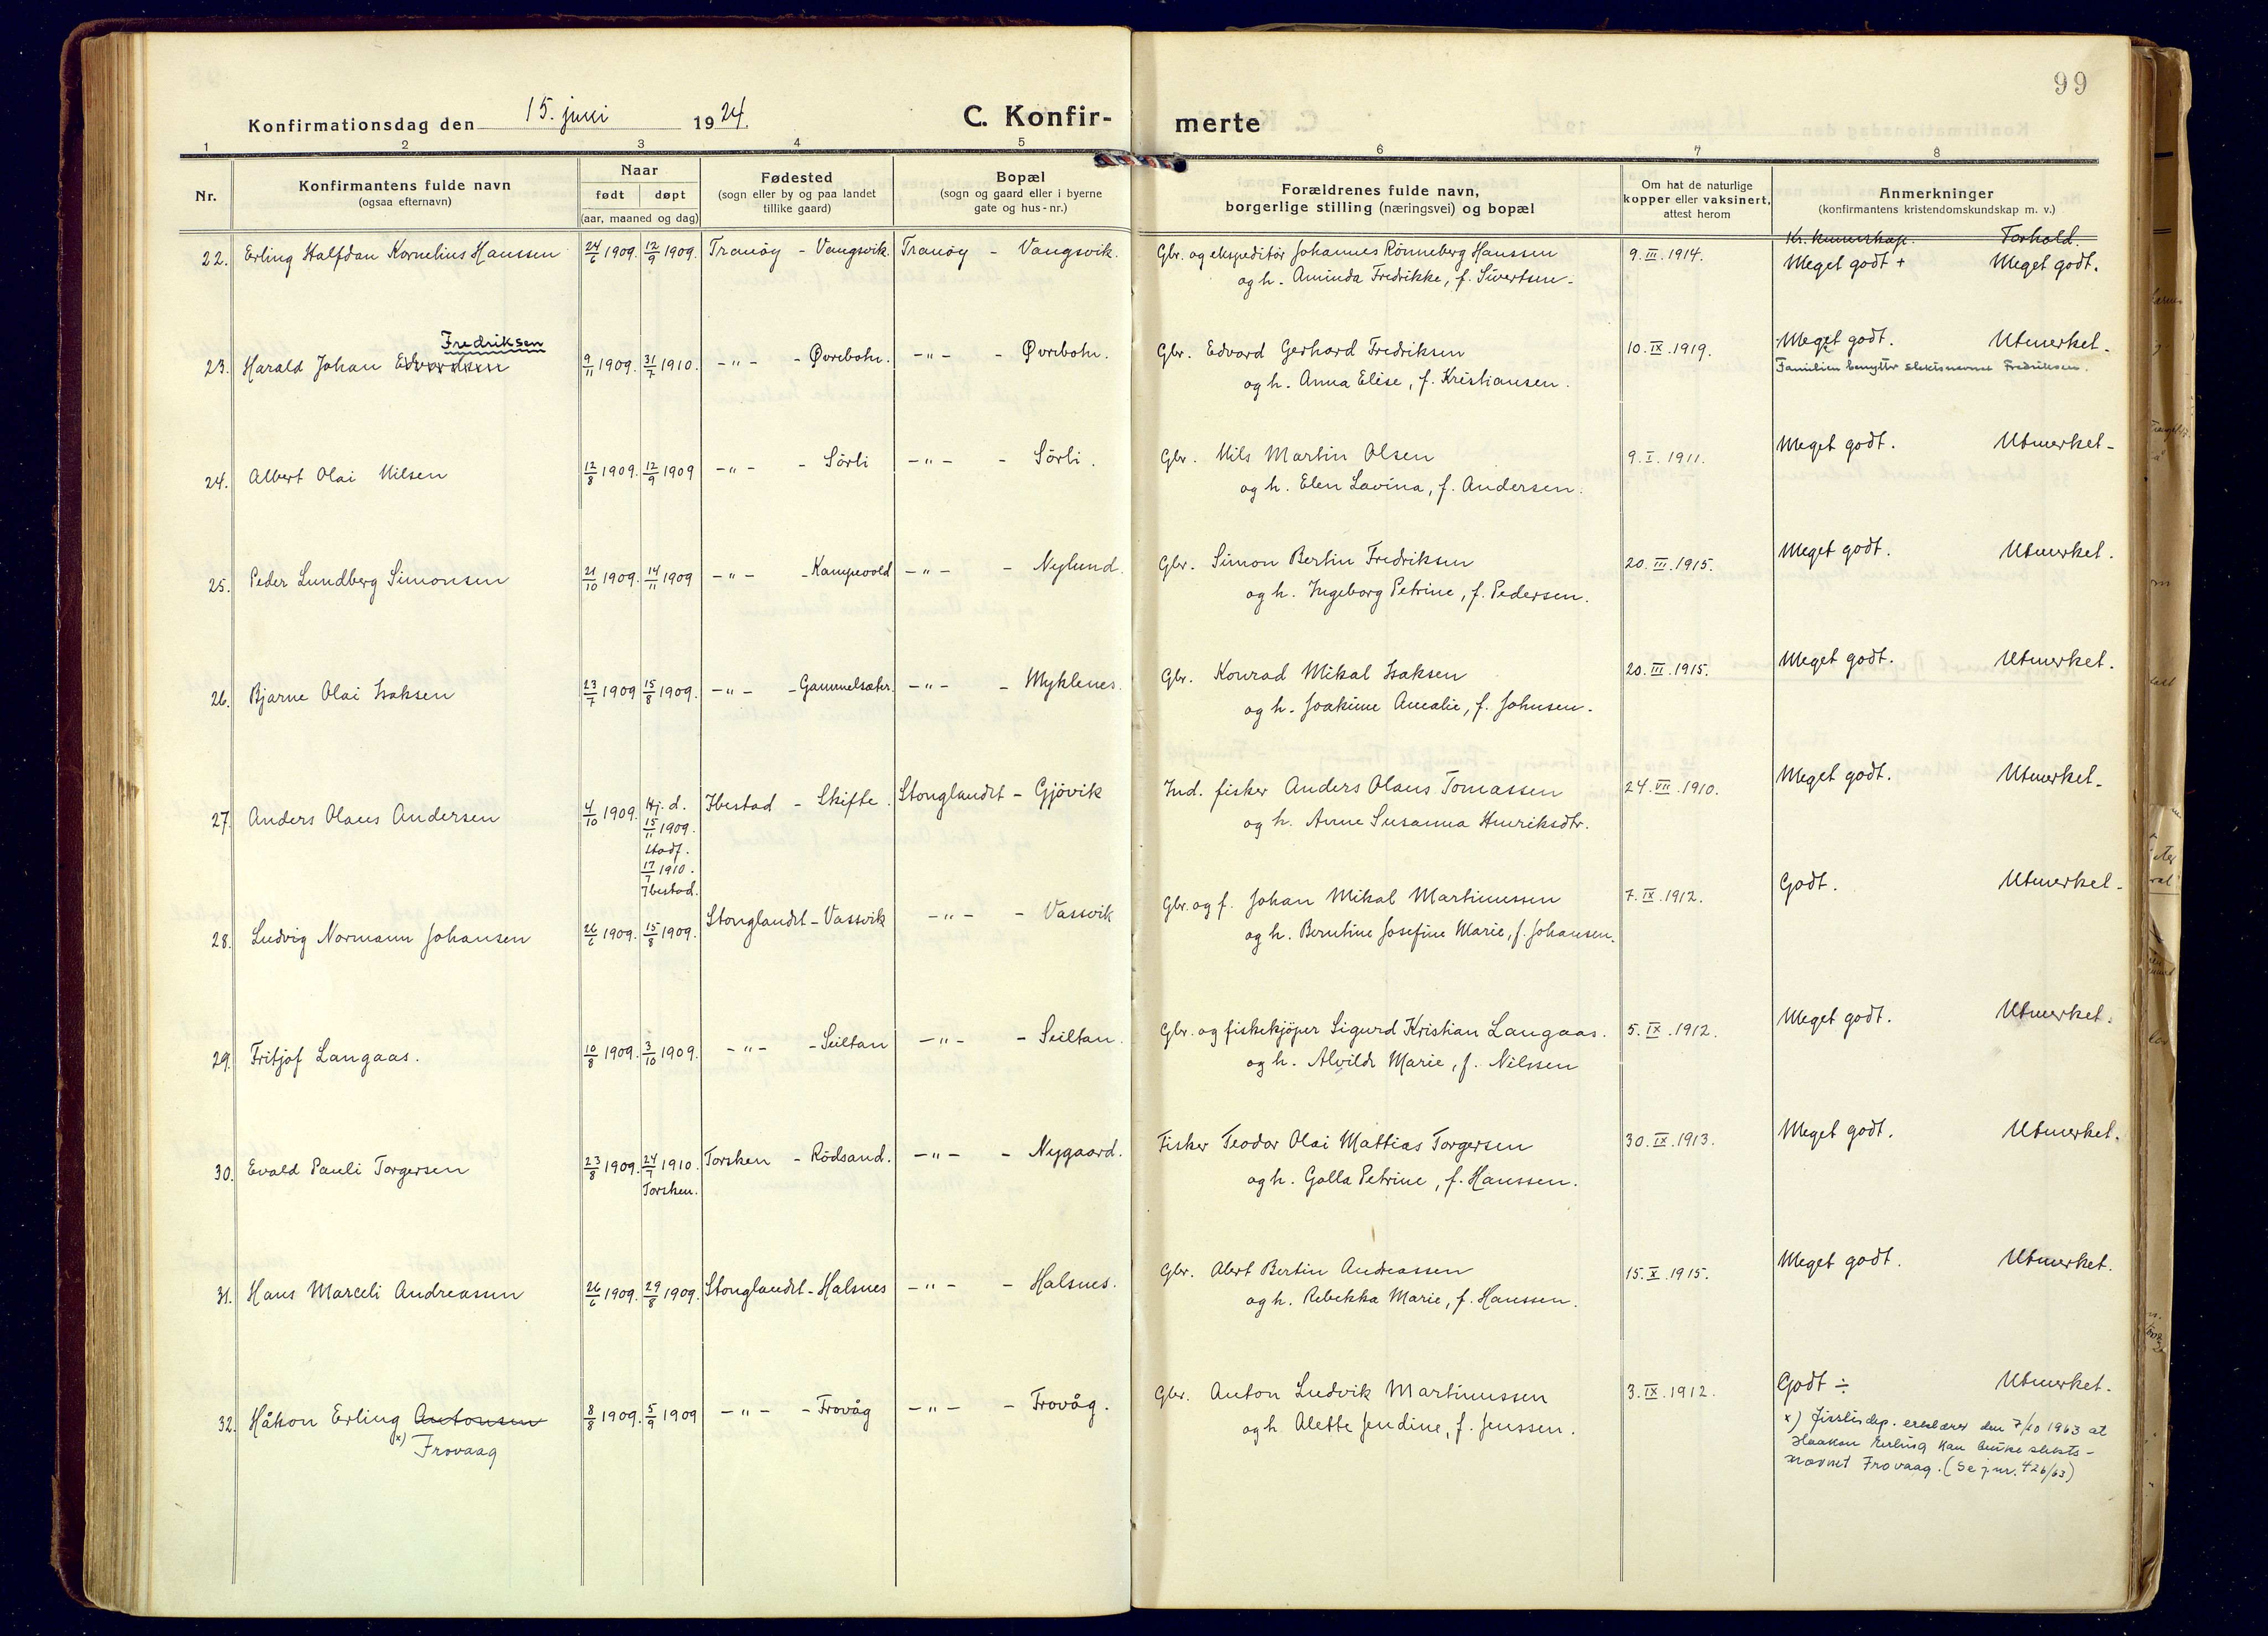 99
Konfirmationsdag den 15. juni 1924. C. Konfir-merte
1 2 3 4 5 6 7 8
Nr.
Konfirmantens fulde navn
(ogsaa efternavn)
Naar
født døpt
(aar, maaned og dag)
Fødested
(sogn eller by og paa landet
tillike gaard)
Bopæl
(sogn og gaard eller i byerne
gate og hus-nr.)
Forældrenes fulde navn,
borgerlige stilling (næringsvei) og bopæl
Om hat de naturlige
kopper eller vaksinert,
attest herom
Anmerkninger
(konfirmantens kristendomskundskap m. v.)
Kr. kunnskap. Forhold.
22. Erling Halfdan Kornelius Hanssen 24/6 1909. 12/9 1909. Tranöy - Vangsvik. Tranöy - Vangsvik. Gbr. og ekspeditör Johannes Rönneberg Hanssen 9. III. 1914. Meget godt + Meget godt.
og h. Aminda Fredrikke, f. Sivertsen.
Fredriksen
23. Harald Johan Edvardsen 9/11 1909. 31/7 1910. -"- - Øvrebotn. -"- - Øvrebotn. Gbr. Edvard Gerhard Fredriksen 10. IX. 1919. Meget godt. Utmerket.
og h. Anna Elise, f. Kristiansen. Familien benytter slektsnavnet Fredriksen.
24. Albert Olai Nilsen 12/8 1909. 12/9 1909 -"- - Sörli -"- - Sörli. Gbr. Nils Martin Olsen 9. I. 1911. Meget godt. Utmerket.
og h. Elen Lavina, f. Andersen.
25. Peder Lundberg Simonsen 21/10 1909. 14/11 1909 -"- - Kampevold -"- - Nylund. Gbr. Simon Bertin Fredriksen 20. III. 1915. Meget godt. Utmerket.
og h. Ingeborg Petrine, f. Pedersen.
26. Bjarne Olai Isaksen 23/7 1909 15/8 1909. -"- - Gammelsæter. -"- - Myklenes. Gbr. Konrad Mikal Isaksen 20. III. 1915. Meget godt. Utmerket.
og h. Joakime Amalie, f. Johnsen.
27. Anders Olaus Andersen 4/10 1909. Hj. d. 15/11 1909. Stadf. 17/7 1910. Ibestad. Ibestad - Skifte. Stonglandet - Gjövik Ind. fisker Anders Olaus Tomassen 24. VII. 1910. Meget godt. Utmerket.
og h. Anne Susanna Henriksdtr.
28. Ludvig Normann Johansen 26/6 1909. 15/8 1909. Stonglandet - Vassvik -"- - Vassvik Gbr. og f. Johan Mikal Martinussen 7. IX. 1912. Godt. Utmerket.
og h. Berntine Josefine Marie, f. Johansen.
29. Fritjof Langaas. 10/8 1909. 3/10 1909. -"- - Seiltan -"- - Seiltan. Gbr. og fiskekjöper Sigurd Kristian Langaas. 5. IX. 1912. Meget godt. Utmerket.
og h. Alvilde Marie, f. Nilssen
30. Evald Pauli Torgersen 23/8 1909. 24/7 1910. Torsken. Torsken - Rödsand. -"- - Nygaard. Fisker Teodor Olai Mattias Torgersen 30. IX. 1913. Meget godt. Utmerket.
og h. Golla Petrine, f. Hanssen.
31. Hans Marceli Andreassen 26/6 1909. 29/8 1909. Stonglandet - Halsnes -"- - Halsnes. Gbr. Albert Bertin Andreassen 15. X. 1915. Meget godt. Utmerket.
og h. Rebekka Marie, f. Hanssen.
32. Håkon Erling Antonsen 8/8 1909. 5/9 1909 -"- - Frovåg -"- - Frovåg. Gbr. Anton Ludvik Martinussen 3. IX. 1912. Godt ÷ Utmerket.
x) Frovaag
og h. Alette Jendine, f. Jenssen.
x) Justisdep. erklærer den 7/10 1963 at
Haakon Erling kan bruke slekts-
navnet Frovaag. (Se j.nr. 426/63)